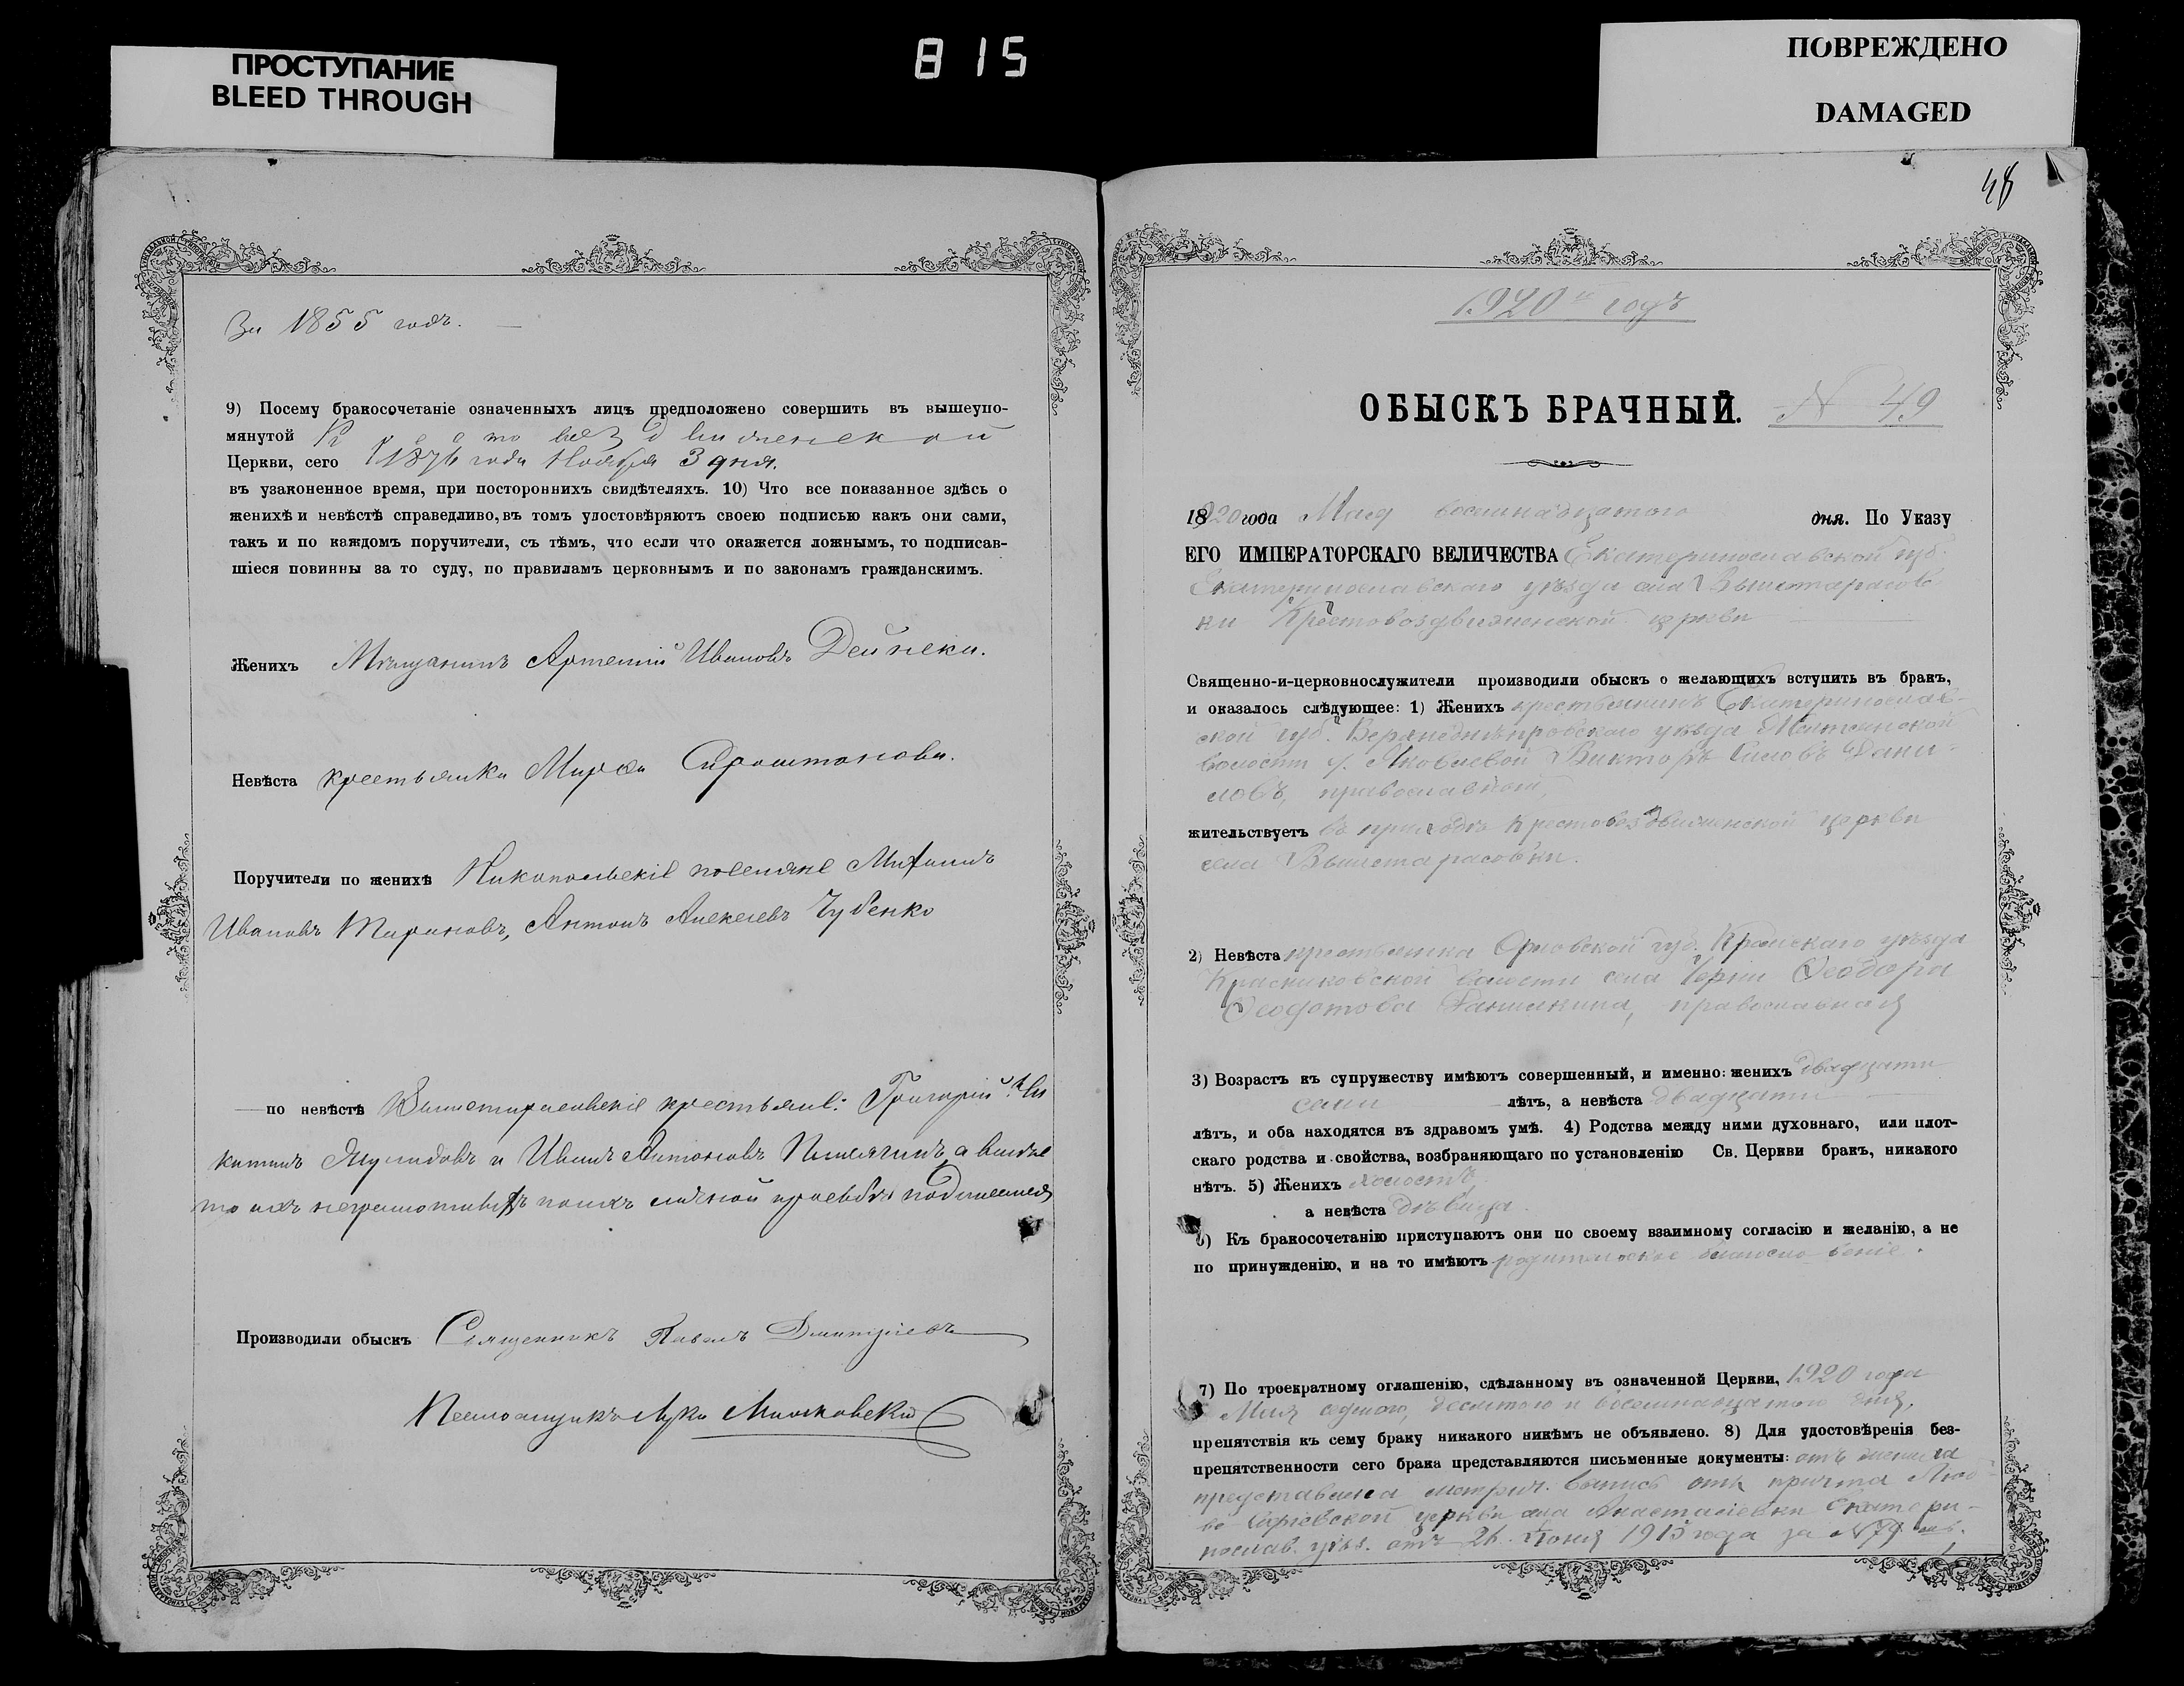 ПРОСТУПАНИЕ
BLEED THROUGH
815
ПОВРЕЖДЕНО
DAMAGED
За 1855 годъ.
9) Посему бракосочетаніе означенныхъ лицъ предположено совершить въ вышеупо-
мянутой Крестовоздвиженской
Церкви, сего 1876 года Ноября 3 дня.
въ узаконенное время, при постороннихъ свидѣтеляхъ. 10) Что все показанное здѣсь о
женихѣ и невѣстѣ справедливо, въ томъ удостовѣряютъ своею подписью какъ они сами,
такъ и по каждомъ поручители, съ тѣмъ, что если что окажется ложнымъ, то подписав-
шіеся повинны за то суду, по правиламъ церковнымъ и по законамъ гражданскимъ.
Женихъ Мѣщанинъ Артемій Ивановъ Дейнека.
Невѣста крестьянка Марѳа
Поручители по женихѣ Никопольскіе поселяне
Ивановъ Тарановъ, Антонъ Алексеевъ Чубенко
по невѣстѣ Вышетарасовскіе крестьяне: Григорій
и Иванъ Антоновъ а вместо
ихъ неграмотныхъ по ихъ личной просьбѣ подписался
Производили обыскъ Священникъ Павелъ Дмитріевъ
Псаломщикъ Лука
48
1920 й годъ
ОБЫСКЪ БРАЧНЫЙ. N 49
1920 года Мая восемнадцатого дня. По Указу
ЕГО ИМПЕРАТОРСКАГО ВЕЛИЧЕСТВА Екатеринославской губ.
Екатеринославскаго уѣзда села Вышетарасов
ки Крестовоздвиженской церкви
Священно-и-церковнослужители производили обыскъ о желающихъ вступить въ бракъ,
и оказалось слѣдующее: 1) Женихъ крестьянинъ Екатеринослав-
ской губ. Верхнеднѣпровскаго уѣзда
волости Викторъ Дани-
ловъ, православный,
жительствуетъ въ приходѣ Крестовоздвиженской церкви
села Вышетарасовки.
2) Невѣста крестьянка Орловской губ. Кромскаго уѣзда
волости села Ѳеодора
Ѳеодотова православная
3) Возрастъ къ супружеству имѣютъ совершенный, и именно: женихъ двадцати
семи лѣтъ, а невѣста двадцати
лѣтъ, и оба находятся въ здравомъ умѣ. 4) Родства между ними духовнаго, или плот-
скаго родства и свойства, возбраняющаго по установленію Св. Церкви бракъ, никакого
нѣтъ. 5) Женихъ холостъ,
а невѣста дѣвица.
6) Къ бракосочетанію приступаютъ они по своему взаимному согласію и желанію, а не
по принужденію, и на то имѣютъ родительское благословеніе.
7) По троекратному оглашенію, сдѣланному въ означенной Церкви, 1920 года
Мая седьмого, десятого и восемнадцатого дня,
препятствія къ сему браку никакого никѣмъ не объявлено. 8) Для удостовѣренія без-
препятственности сего брака представляются письменные документы: отъ жениха
представлена метрич. выпись отъ причта
церкви села Анастасіевки Екатери-
нослав. уѣз. отъ 26 Іюня 1915 года за N 79